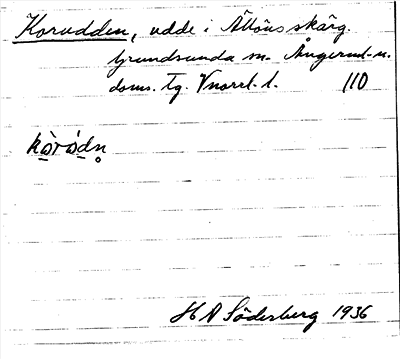 Korudden, udde i Ällöns skärg.
Grundsunda sn. Ångerml. n.
doms. tg. Vnorrl. l. 110
kòrödn̥
H A Söderberg 1936